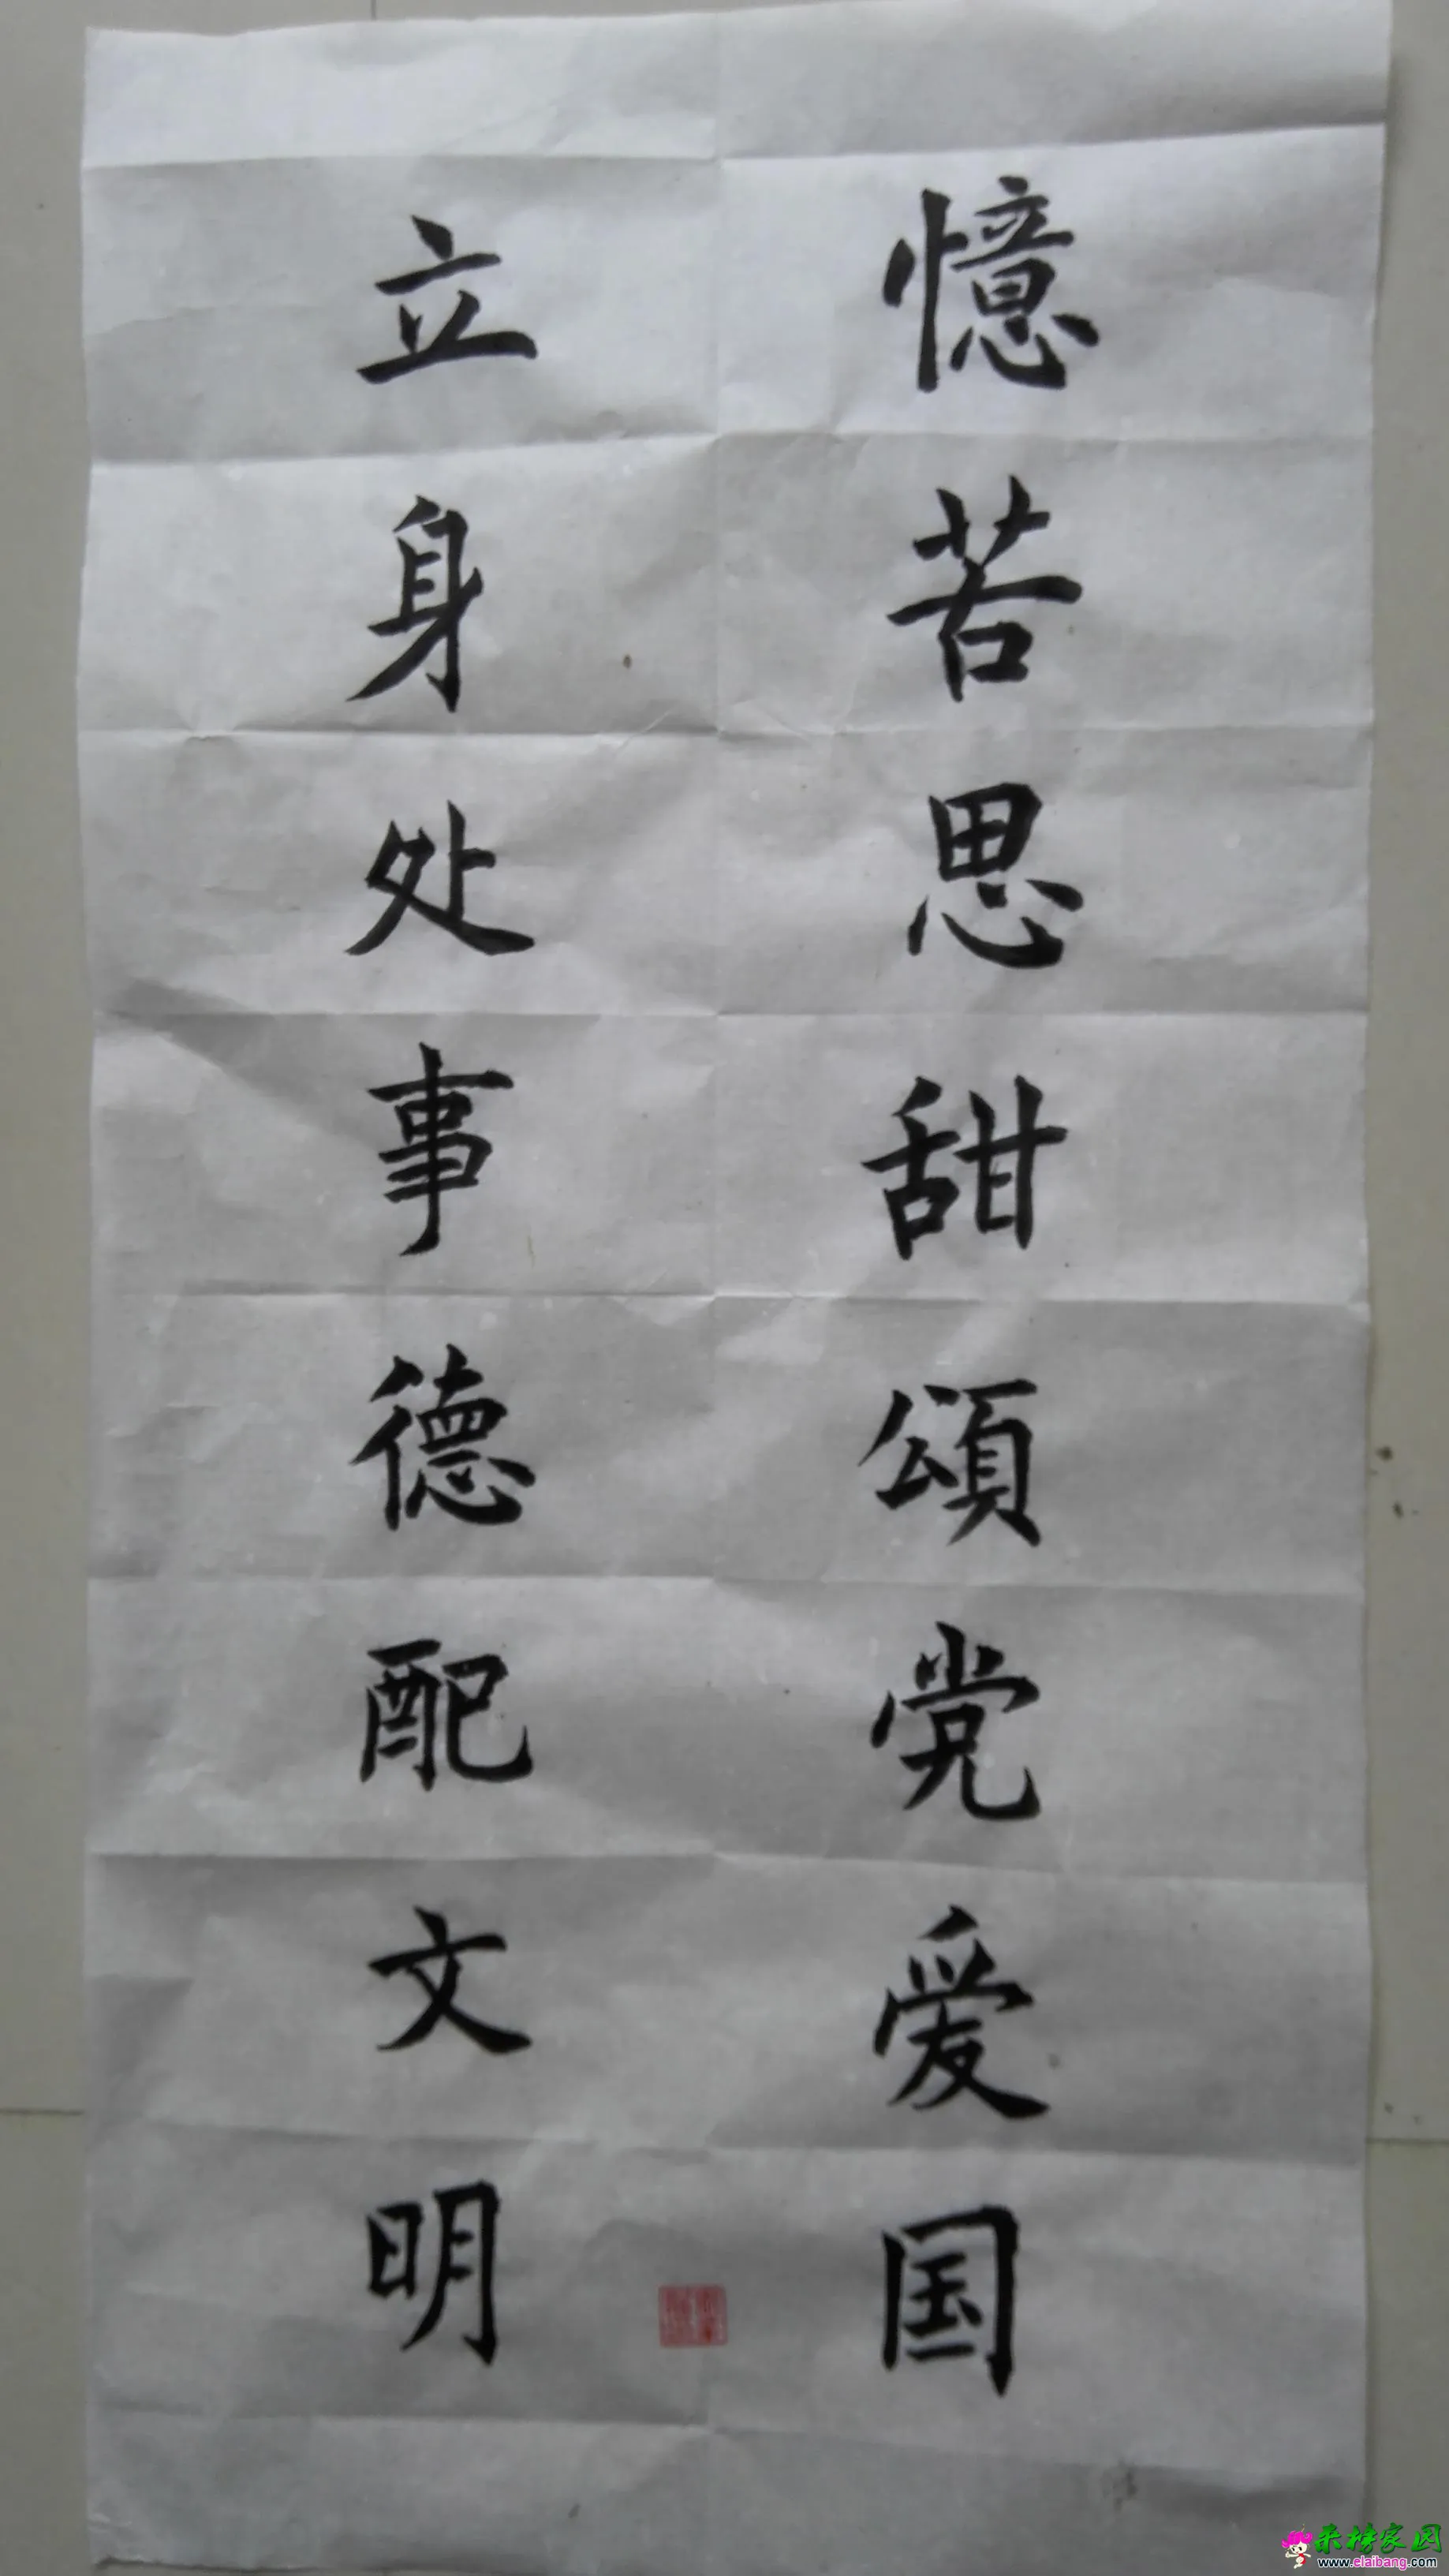 憶苦思甜頌党爱国
立身处事德配文明
来榜家园
www.elaibang.com